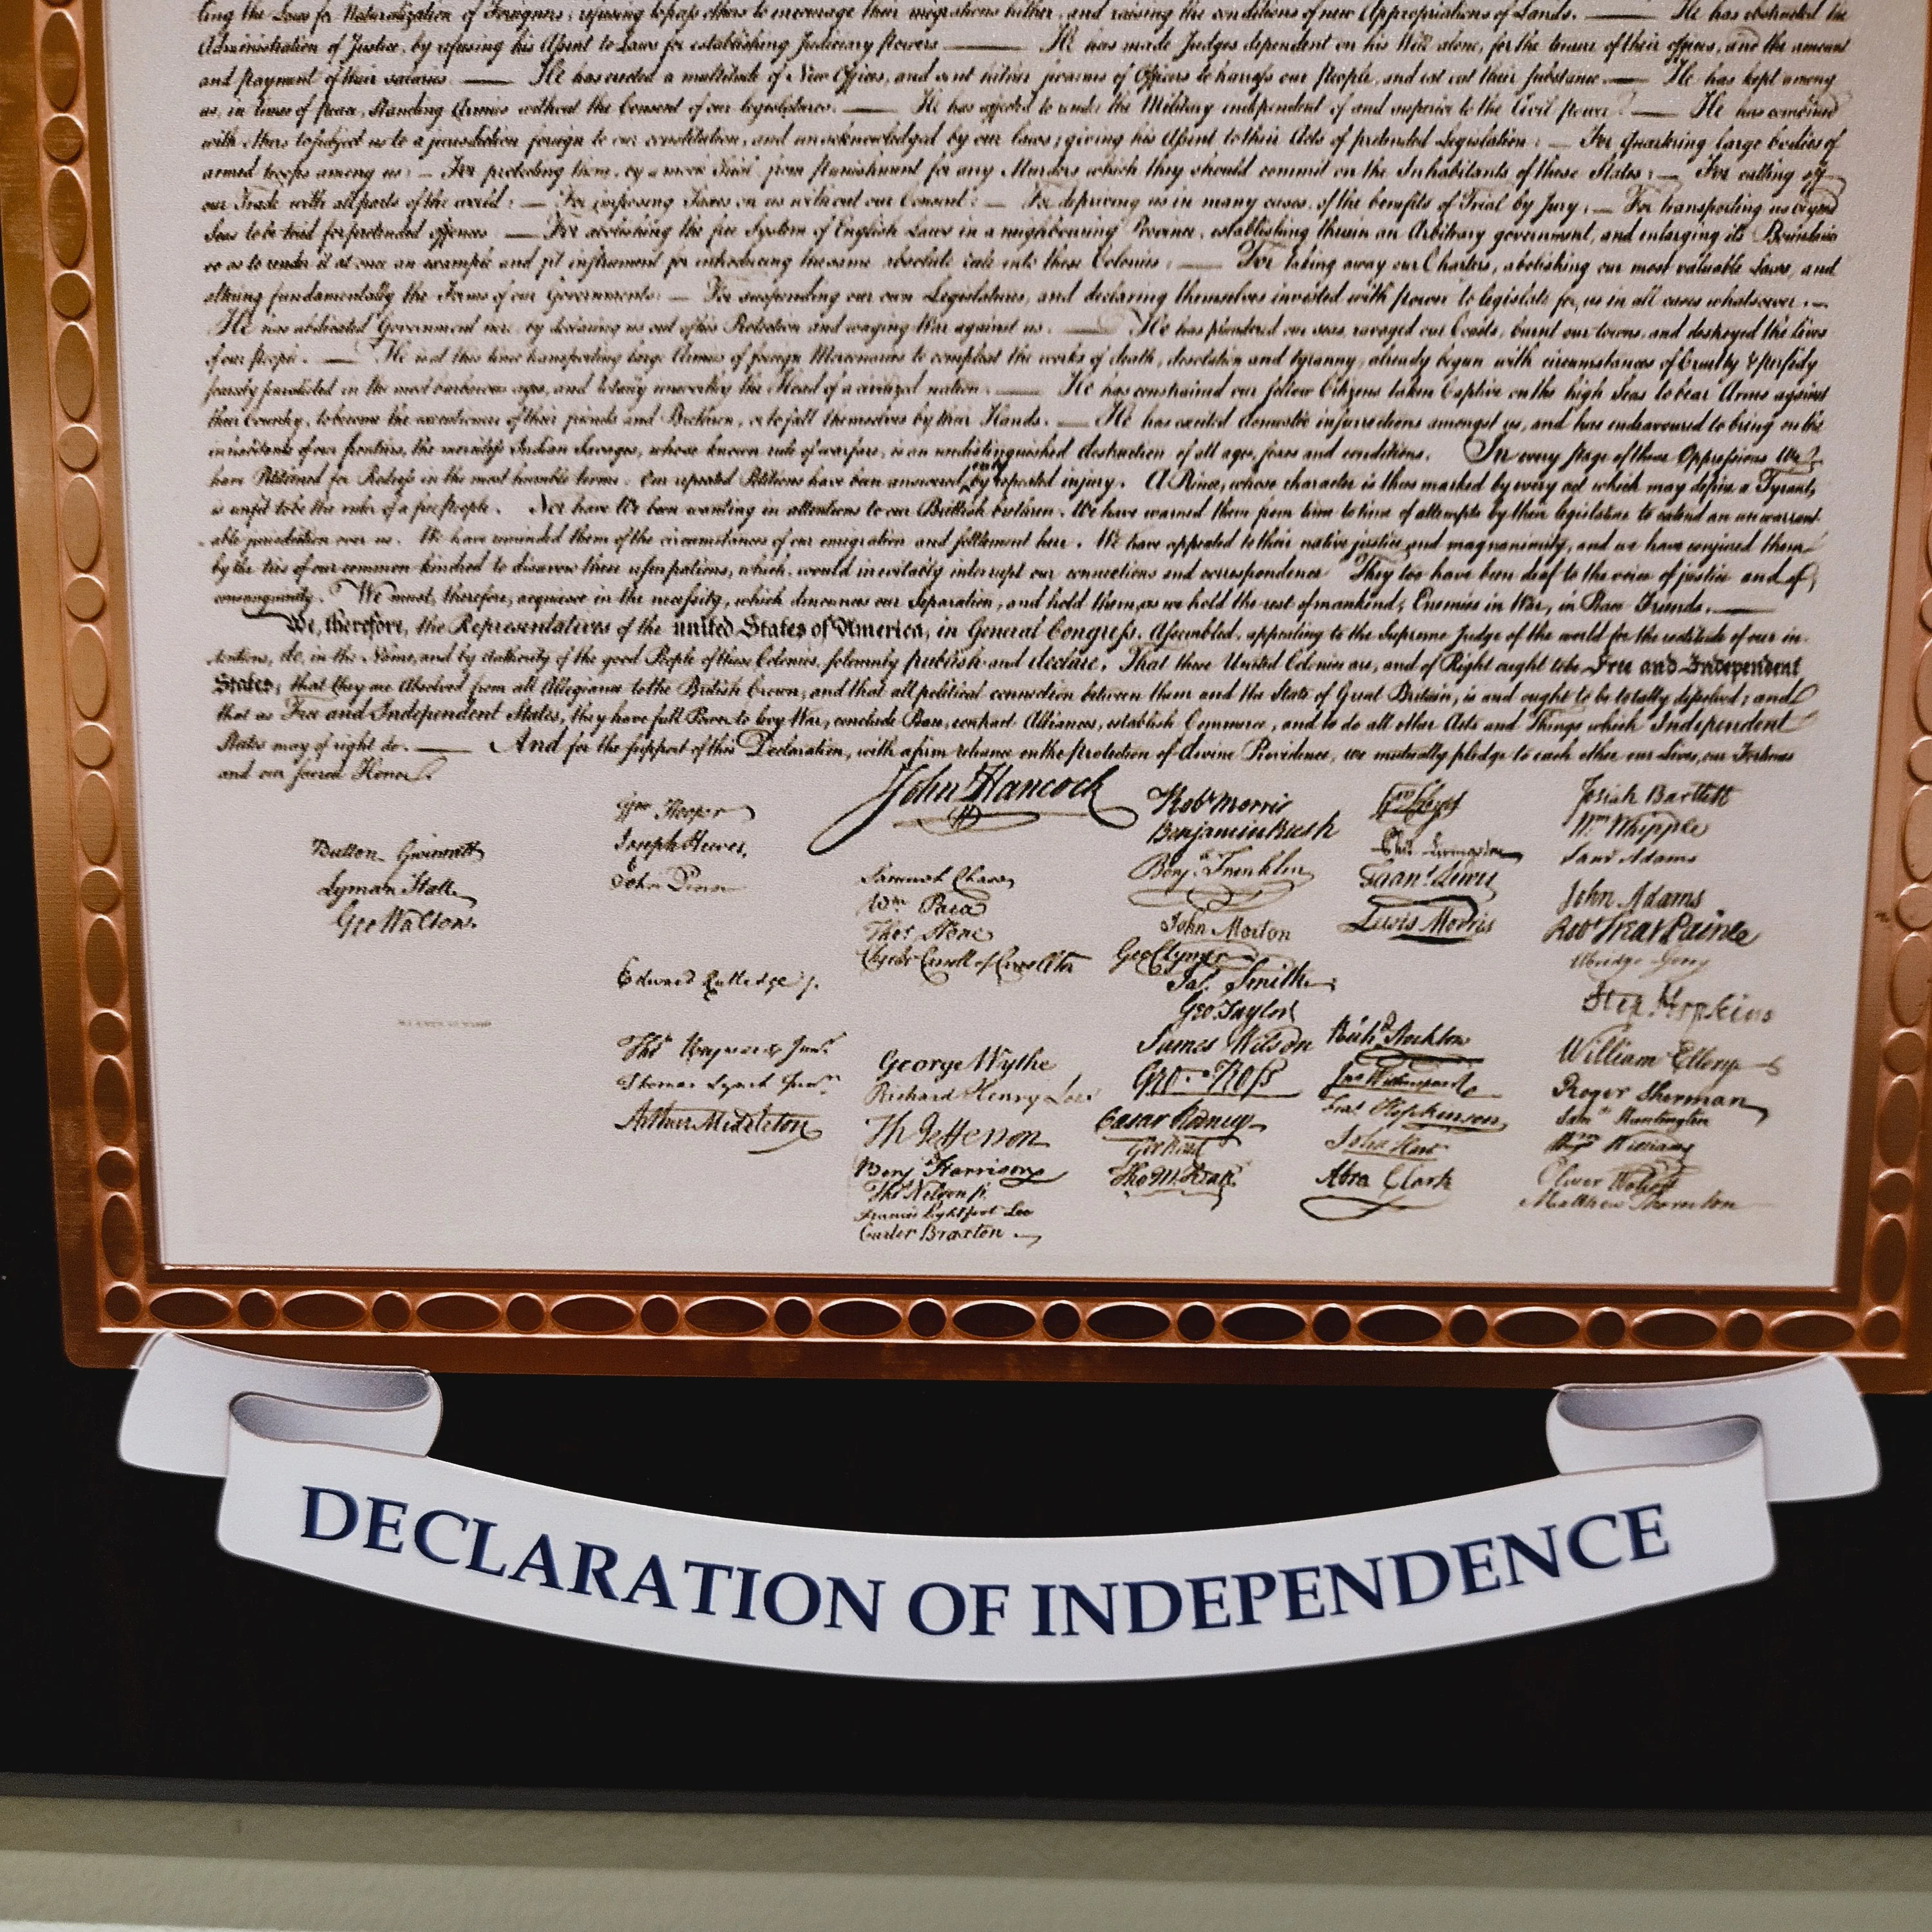 ting the Laws for Naturalization of Foreigners; refusing to pass others to encourage their migrations hither, and raising the conditions of new Appropriations of Lands. — He has obstructed the
Administration of Justice, by refusing his Assent to Laws for establishing Judiciary Powers — He has made Judges dependent on his Will alone, for the tenure of their offices, and the amount
and payment of their salaries — He has erected a multitude of New Offices, and sent hither swarms of Officers to harrass our People, and eat out their substance — He has kept among
us, in times of peace, Standing Armies without the Consent of our legislatures. — He has affected to render the Military independent of and superior to the Civil Power. — He has combined
with others to subject us to a jurisdiction foreign to our constitution, and unacknowledged by our laws; giving his Assent to their Acts of pretended Legislation: — For quartering large bodies of
armed troops among us: — For protecting them, by a mock Trial, from Punishment for any Murders which they should commit on the Inhabitants of these States: — For cutting off
our Trade with all parts of the world: — For imposing Taxes on us without our Consent: — For depriving us in many cases, of the benefits of Trial by Jury: — For transporting us beyond
Seas to be tried for pretended offences — For abolishing the free System of English Laws in a neighbouring Province, establishing therein an Arbitrary government, and enlarging its Boundaries
so as to render it at once an example and fit instrument for introducing the same absolute rule into these Colonies: — For taking away our Charters, abolishing our most valuable Laws, and
altering fundamentally the Forms of our Governments: — For suspending our own Legislatures, and declaring themselves invested with Power to legislate for us in all cases whatsoever. —
He has abdicated Government here, by declaring us out of his Protection and waging War against us. — He has plundered our seas, ravaged our Coasts, burnt our towns, and destroyed the lives
of our People. — He is at this time transporting large Armies of foreign Mercenaries to compleat the works of death, desolation and tyranny, already begun with circumstances of Cruelty & perfidy
scarcely paralleled in the most barbarous ages, and totally unworthy the Head of a civilized nation. — He has constrained our fellow Citizens taken Captive on the high Seas to bear Arms against
their Country, to become the executioners of their friends and Brethren, or to fall themselves by their Hands. — He has excited domestic insurrections amongst us, and has endeavoured to bring on the
inhabitants of our frontiers, the merciless Indian Savages, whose known rule of warfare, is an undistinguished destruction of all ages, sexes and conditions. In every stage of these Oppressions We
have Petitioned for Redress in the most humble terms: Our repeated Petitions have been answered only by repeated injury. A Prince, whose character is thus marked by every act which may define a Tyrant,
is unfit to be the ruler of a free People. Nor have We been wanting in attentions to our Brittish brethren. We have warned them from time to time of attempts by their legislature to extend an unwarrant-
able jurisdiction over us. We have reminded them of the circumstances of our emigration and settlement here. We have appealed to their native justice and magnanimity, and we have conjured them
by the ties of our common kindred to disavow these usurpations, which, would inevitably interrupt our connections and correspondence They too have been deaf to the voice of justice and of
consanguinity. We must, therefore, acquiesce in the necessity, which denounces our Separation, and hold them, as we hold the rest of mankind, Enemies in War, in Peace Friends. —
We, therefore, the Representatives of the united States of America, in General Congress, Assembled, appealing to the Supreme Judge of the world for the rectitude of our in-
tentions, do, in the Name, and by Authority of the good People of these Colonies, solemnly publish and declare, That these United Colonies are, and of Right ought to be Free and Independent
States; that they are Absolved from all Allegiance to the British Crown, and that all political connection between them and the State of Great Britain, is and ought to be totally dissolved; and
that as Free and Independent States, they have full Power to levy War, conclude Peace, contract Alliances, establish Commerce, and to do all other Acts and Things which Independent
States may of right do. — And for the support of this Declaration, with a firm reliance on the protection of divine Providence, we mutually pledge to each other our Lives, our Fortunes
and our sacred Honor.
Button Gwinnett
Lyman Hall
Geo Walton.
Wm Hooper
Joseph Hewes,
John Penn
Edward Rutledge /.
Thos Heyward Junr.
Thomas Lynch Junr.
Arthur Middleton
John Hancock
Samuel Chase
Wm. Paca
Thos. Stone
Charles Carroll of Carrollton
George Wythe
Richard Henry Lee
Th Jefferson
Benj Harrison
Thos Nelson jr.
Francis Lightfoot Lee
Carter Braxton
Robt Morris
Benjamin Rush
Benj. Franklin
John Morton
Geo Clymer
Jas. Smith
Geo. Taylor
James Wilson
Geo. Ross
Caesar Rodney
Geo Read
Tho M:Kean
Wm Floyd
Phil. Livingston
Frans. Lewis
Lewis Morris
Richd. Stockton
Jno Witherspoon
Fras. Hopkinson
John Hart
Abra Clark
Josiah Bartlett
Wm. Whipple
Saml Adams
John Adams
Robt Treat Paine
Elbridge Gerry
Step. Hopkins
William Ellery
Roger Sherman
Saml. Huntington
Wm. Williams
Oliver Wolcott
Matthew Thornton
DECLARATION OF INDEPENDENCE